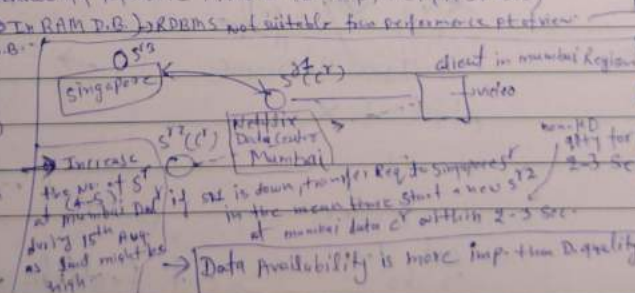 In RAM D.B.) RDBMS not suitable from performance pt of view
D.B.
Sr3
Singapore
Sr1 (Cr)
client in mumbai Region
video
Netflix
Data Center
Mumbai
Sr2 (Cr)
non-HD
qlty for
2-3 Sec
→ Increase
the No. of Sr
(4-5)
at mumbai Dat Cr
during 15th Aug
as load might be
high
if Sr1 is down, transfer Req to Singapore Sr
in the mean time start a new Sr2
at mumbai data Cr within 2-3 Sec.
→ Data Availability is more imp. than D. quality